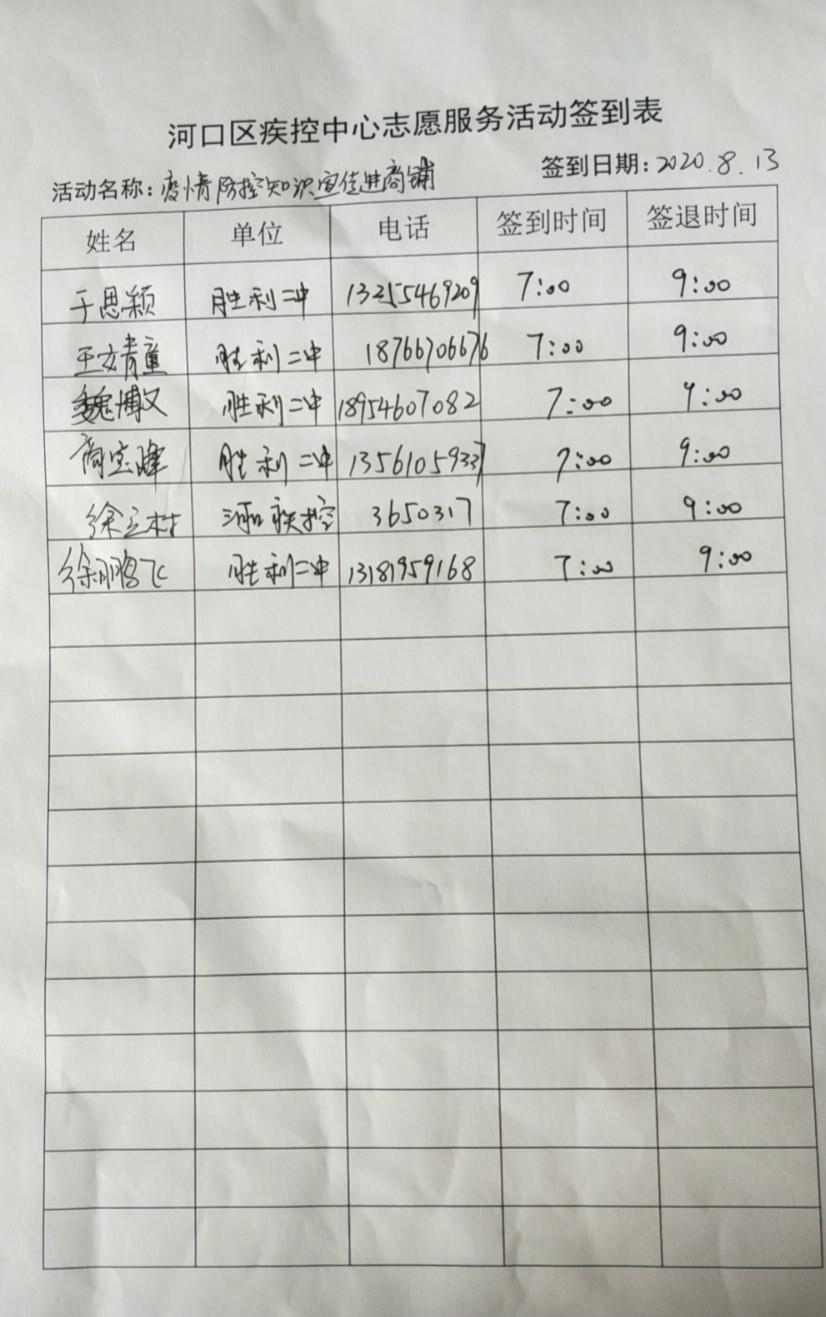 河口区疾控中心志愿服务活动签到表
活动名称：疫情防控知识宣传进商铺 签到日期：2020.8.13
姓名 单位 电话 签到时间 签退时间
于思颖 胜利二中 13255469209 7:00 9:00
王文青童 胜利二中 18766706676 7:00 9:00
魏博文 胜利二中 18954607082 7:00 9:00
商宝峰 胜利二中 13561059337 7:00 9:00
徐立村 河口疾控 3650317 7:00 9:00
徐鹏飞 胜利二中 13181959168 7:00 9:00